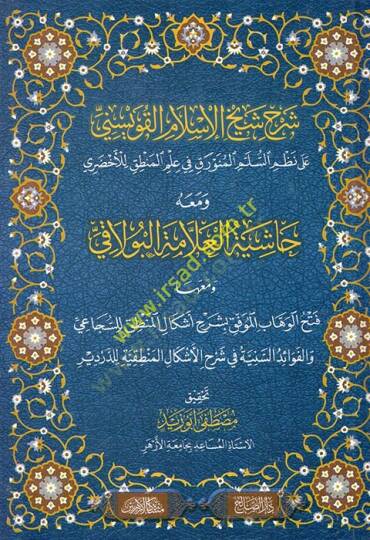 شرح شيخ الإسلام القويسني
على نظم السلم المنورق في علم المنطق للأخضري
ومعه
حاشية العلامة البولاقي
ومعها
فتح الوهاب الموفق بشرح أشكال المنطق للسجاعي
والفوائد السنية في شرح الأشكال المنطقية للدردير
تحقيق
مصطفى أبو زيد
الأستاذ المساعد بجامعة الأزهر